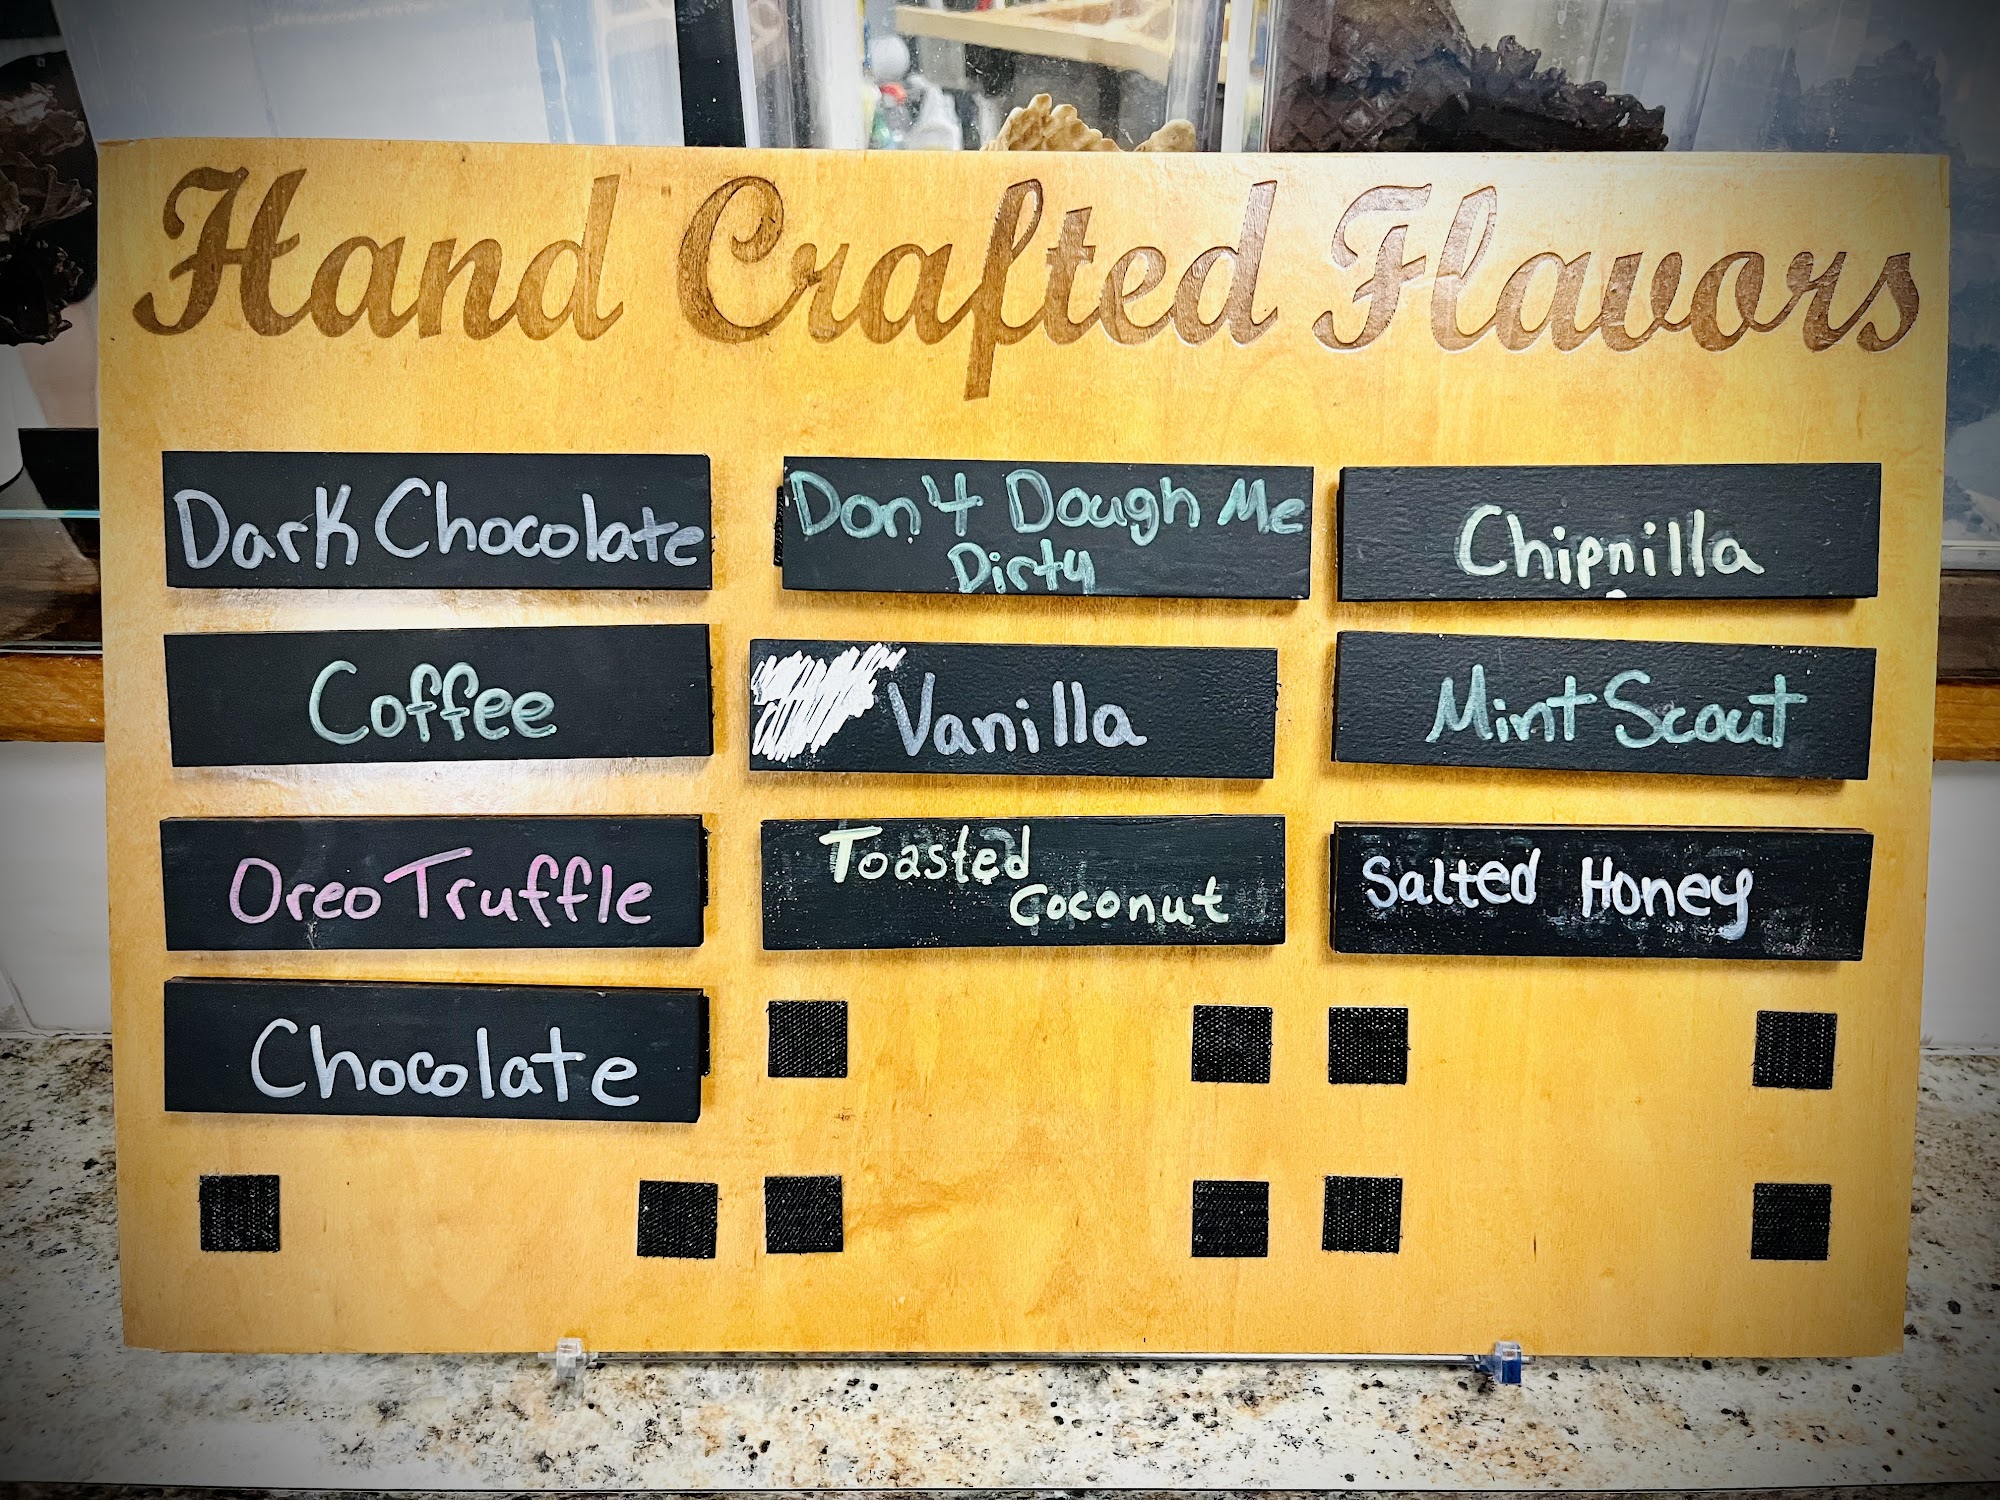 Hand Crafted Flavors
Dark Chocolate
Don't Dough Me
Dirty
Chipnilla
Coffee
Vanilla
Mint Scout
Oreo Truffle
Toasted
Coconut
Salted Honey
Chocolate